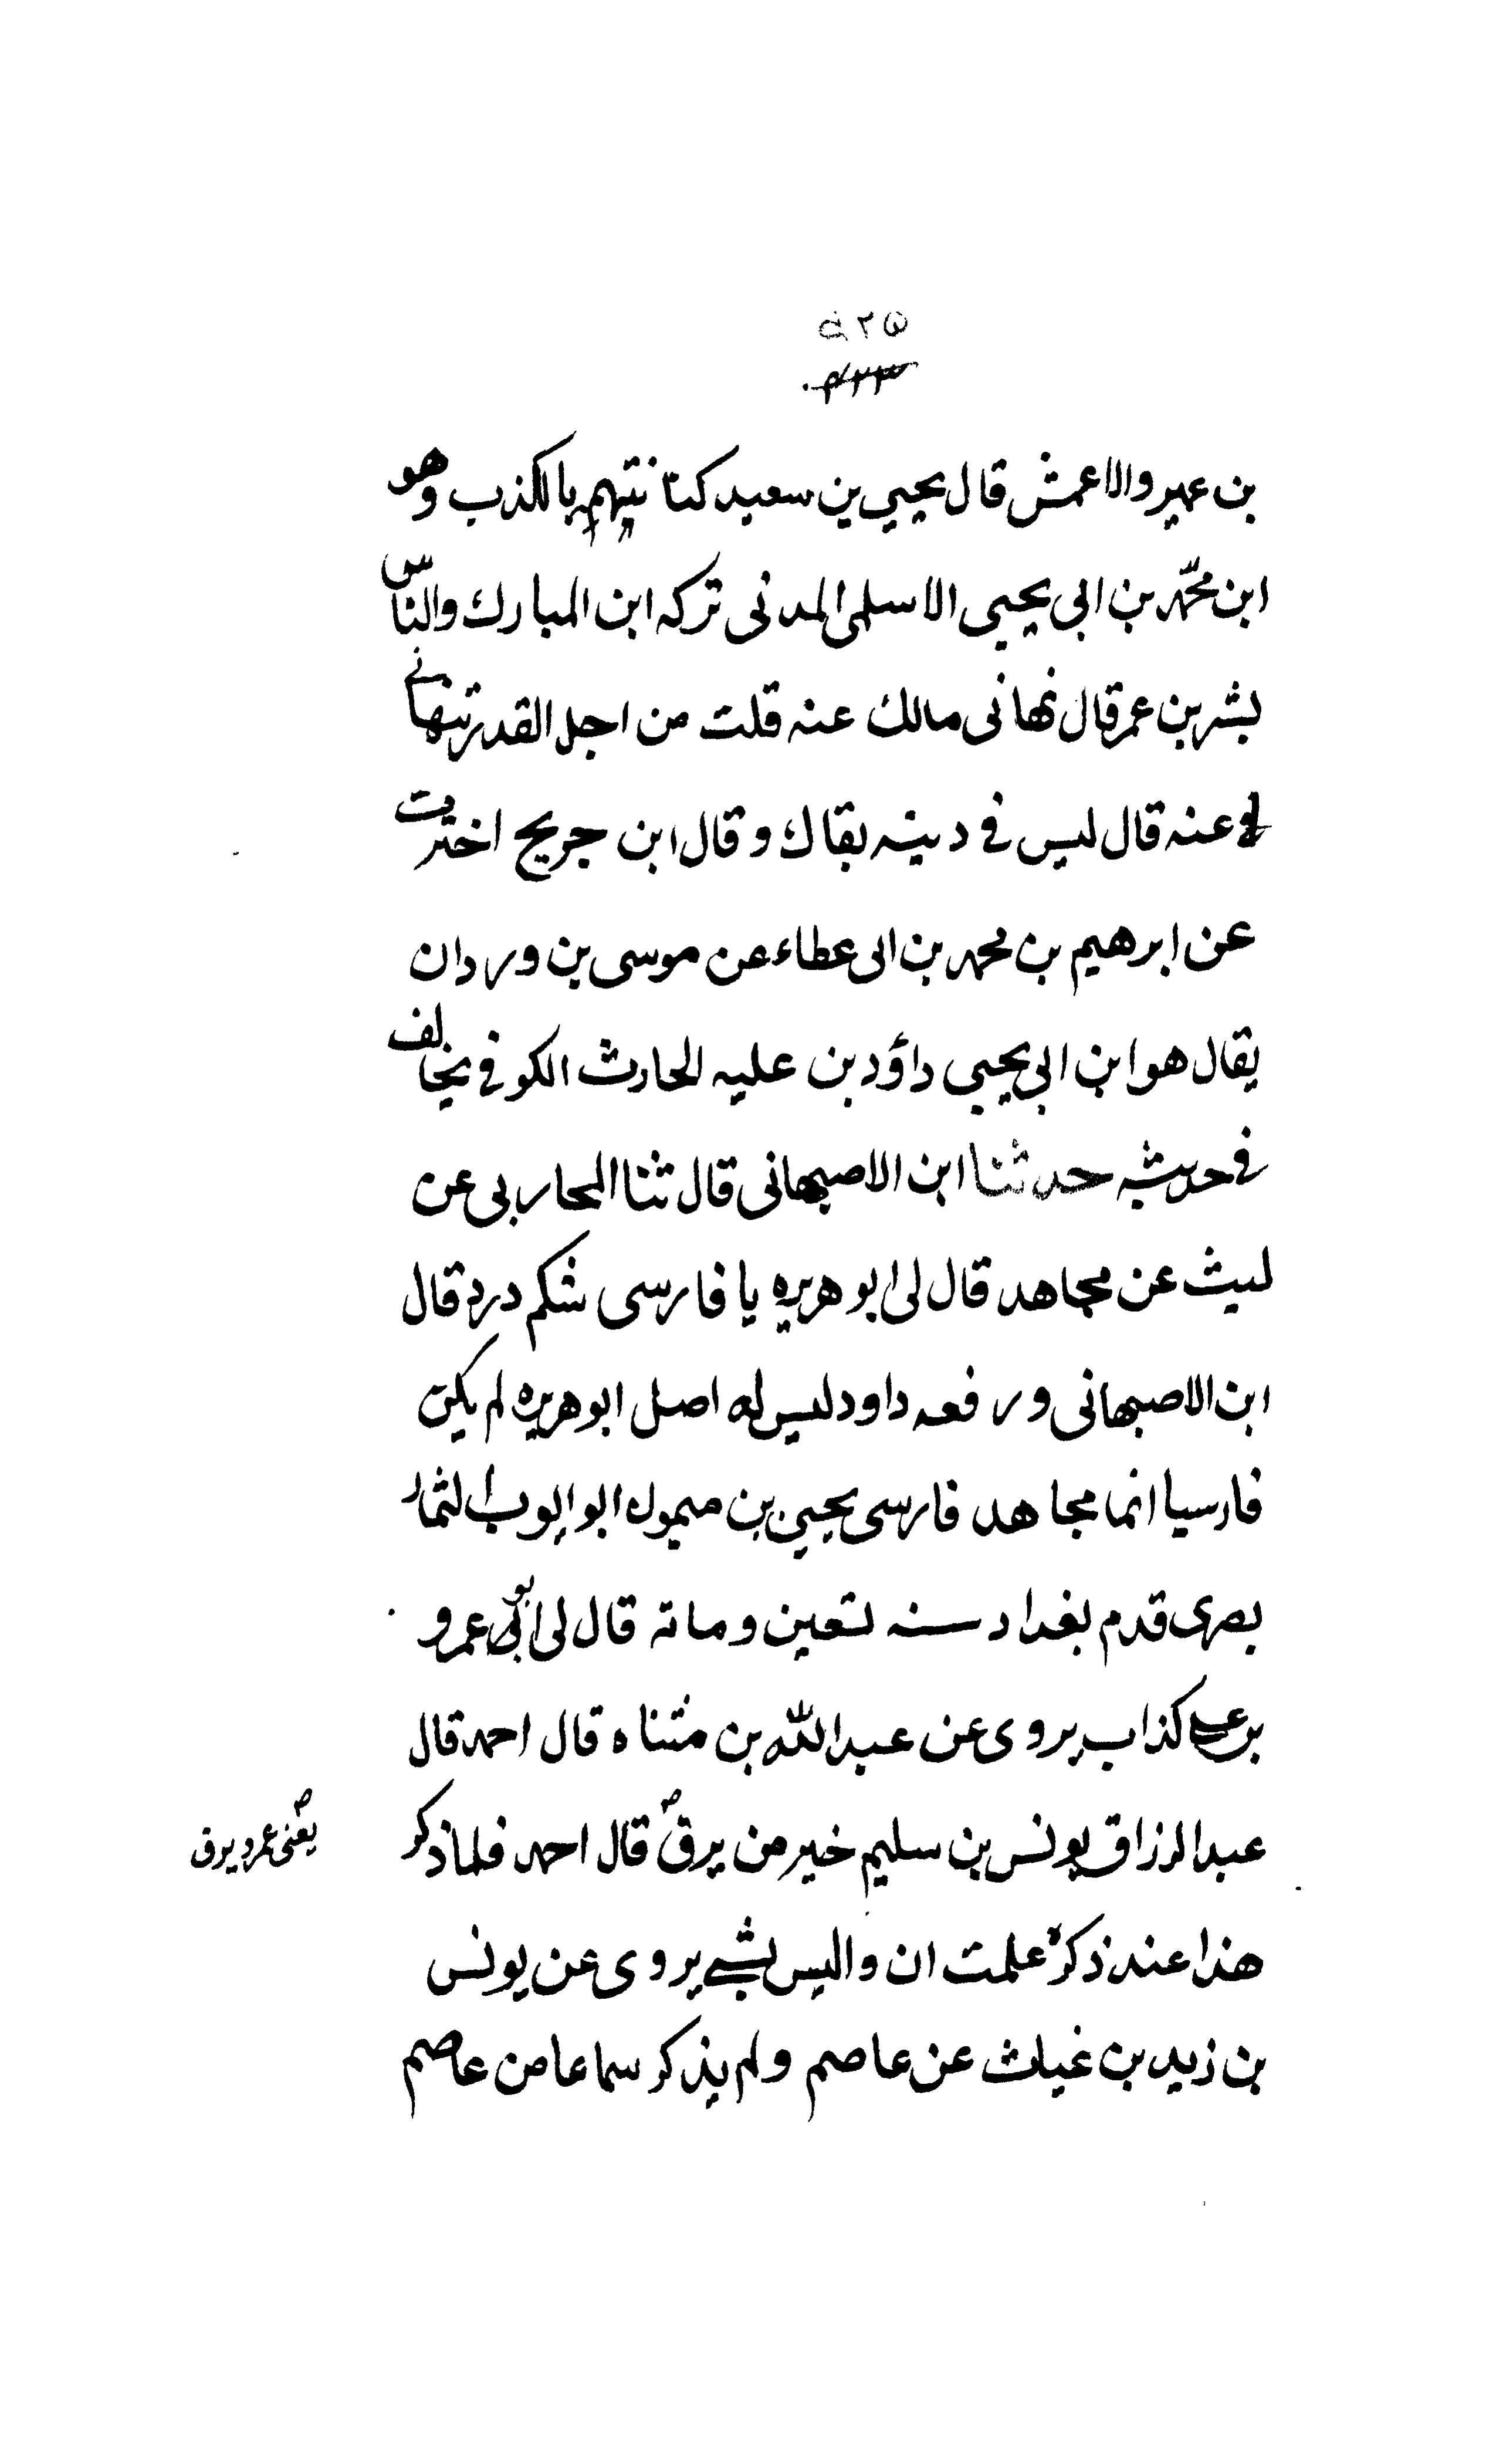 ٥٢٥
٤٢٣
بن عمير والاعمش قال يحيي بن سعيد كنا نتهم بالكذب وهو
ابن محمّد بن ابي يحيى الاسلمى المدنى تركه ابن المبارك والناس
بشر بن عمر قال نهانى مالك عنه قلت من اجل القدر تنهانے
عنه قال ليس فى دينه بقاك وقال ابن جريج اخترت
عن ابرهيم بن محمد بن ابى عطاء عن موسى بن وردان
يقال هو ابن ابي يحيى داؤد بن عليه الحارث الكوفى يخالف
فى حديثه حدثنا ابن الاصبهانى قال ثنا المحاربى عن
ليث عن مجاهد قال لى ابو هريره يا فارسى شكم درد قال
ابن الاصبهانى ورفعه داود ليس له اصل ابو هريره لم يكن
فارسيا انما مجاهد فارسى يحيى بن ميمون ابو ايوب التمار
بصرى قدم بغداد سنه تسعين ومائه قال لى عمرو
بن على كذاب يروى عن عبد الله بن مثناه قال احمد قال
عبد الرزاق يونس بن سليم خير من برق قال احمد فلما ذكر
يعنى عمرو برق
هذا عند ذكره علمت ان واليس بشے يروى عن يونس
بن زيد بن غياث عن عاصم ولم يذكر سماعا من عاصم